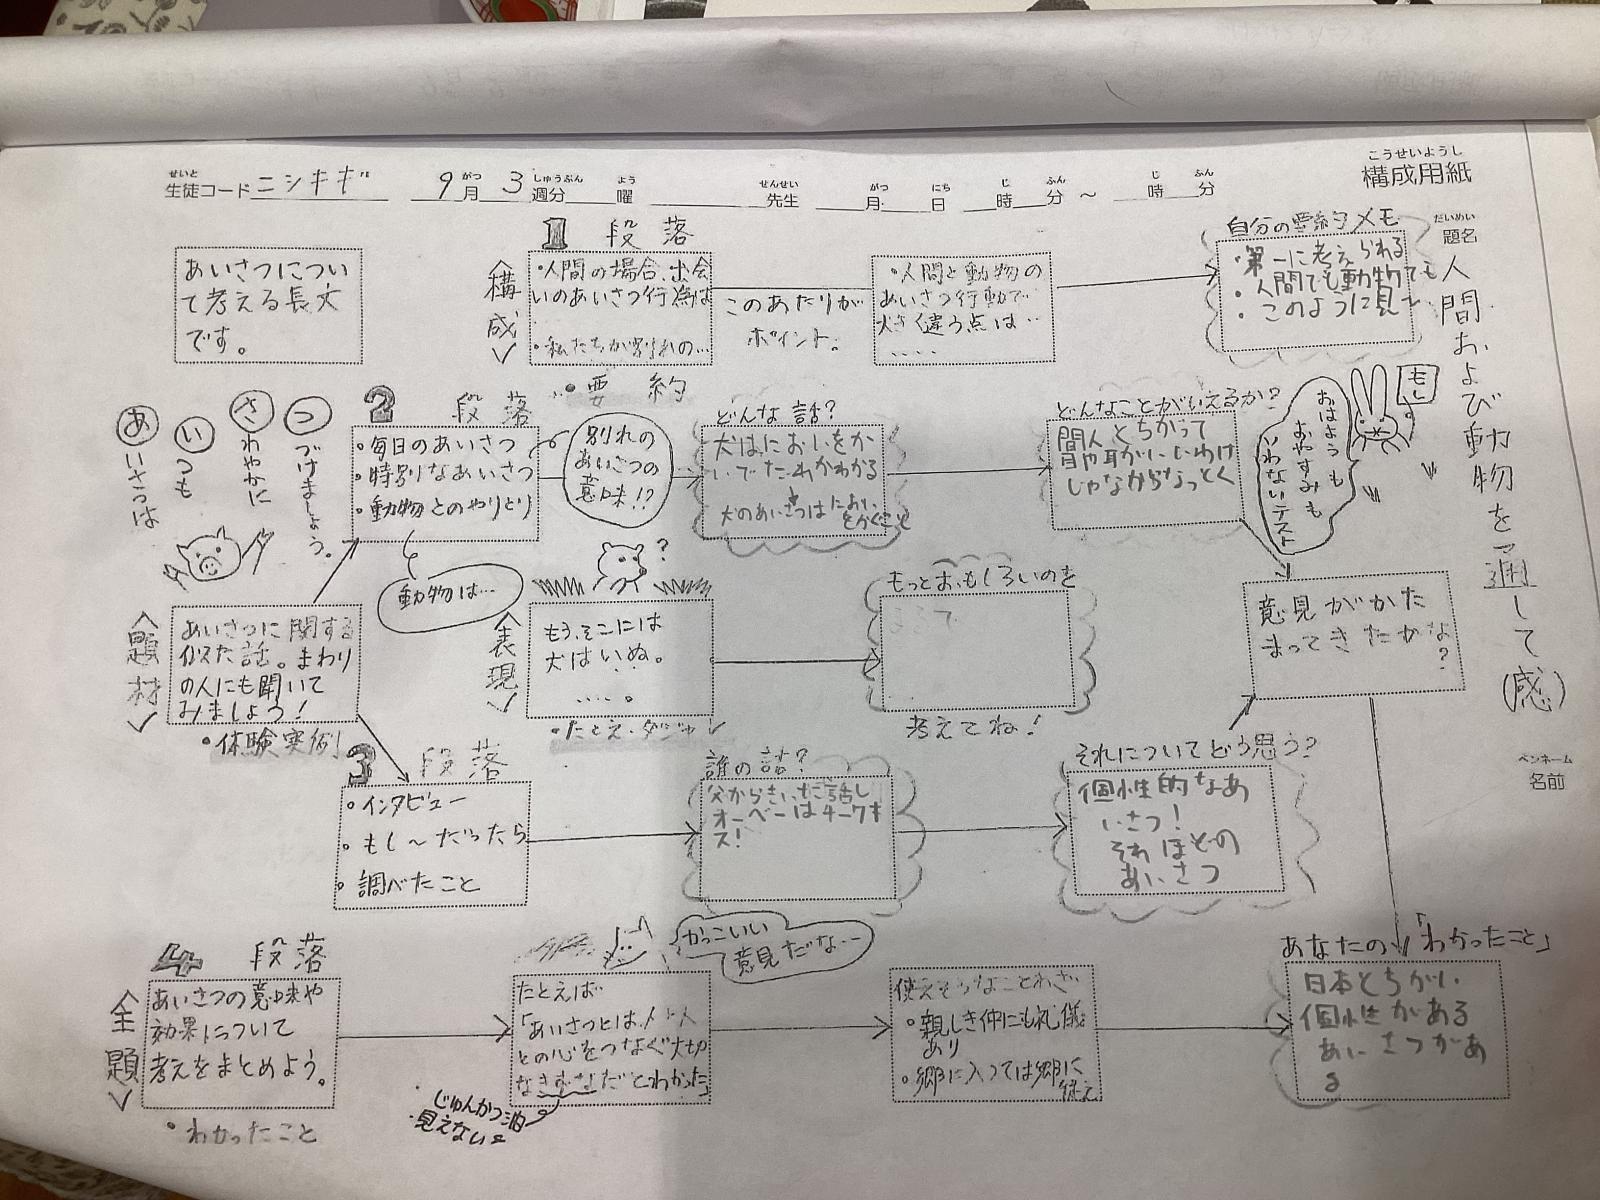 構成用紙
こうせいようし
生徒コード ニシキギ 9月 3週分 曜 先生 月 日 時 分 ～ 時 分
せいと がつ しゅうぶん よう せんせい がつ にち じ ふん じ ふん
題名
だいめい
人間および動物を通して(感)
ペンネーム
名前
あいさつについ
て考える長文
です。
1 段落
〈構成〉
・人間の場合、出会
いのあいさつ行為は
・私たちが別れの…
・要約
このあたりが
ポイント。
・人間と動物の
あいさつ行動で
大きく違う点は…
....
自分の要約メモ
・第一に考えられる
・人間でも動物でも
・このように見～
あいさつは
いつも
さわやかに
つづけましょう。
2 段落
・毎日のあいさつ
・特別なあいさつ
・動物とのやりとり
別れの
あいさつの
意味!?
動物は…
どんな話?
犬はにおいをか
いでだれかわかる
犬のあいさつはにおい
をかぐこと
どんなことがいえるか?
間人とちがって
目や耳がいいわけ
じゃなからなっとく
もし。
おはようも
おやすみも
いわないテスト
〈題材〉
あいさつに関する
似た話。まわり
の人にも聞いて
みましょう!
・体験実例
〈表現〉
?
もう、そこには
犬はいぬ。
....。
・たとえ・ダジャレ
もっとおもしろいのを
ここで
考えてね!
意見がかた
まってきたかな
?
3 段落
・インタビュー
・もし～だったら
・調べたこと
誰の話?
父からきいた話し
オーベーはチークキ
ス!
それについてどう思う?
個性的なあ
いさつ!
それほどの
あいさつ
4 段落
〈全題〉
あいさつの意味や
効果について
考えをまとめよう。
・わかったこと
かっこいい
意見だな…
たとえば
「あいさつとは、人と人
との心をつなぐ大切
なきずなだとわかった」
じゅんかつ油
見えない
使えそうなことわざ
・親しき仲にも礼儀
あり
・郷に入っては郷に
従え
あなたの「わかったこと」
日本とちがい
個性がある
あいさつがあ
る